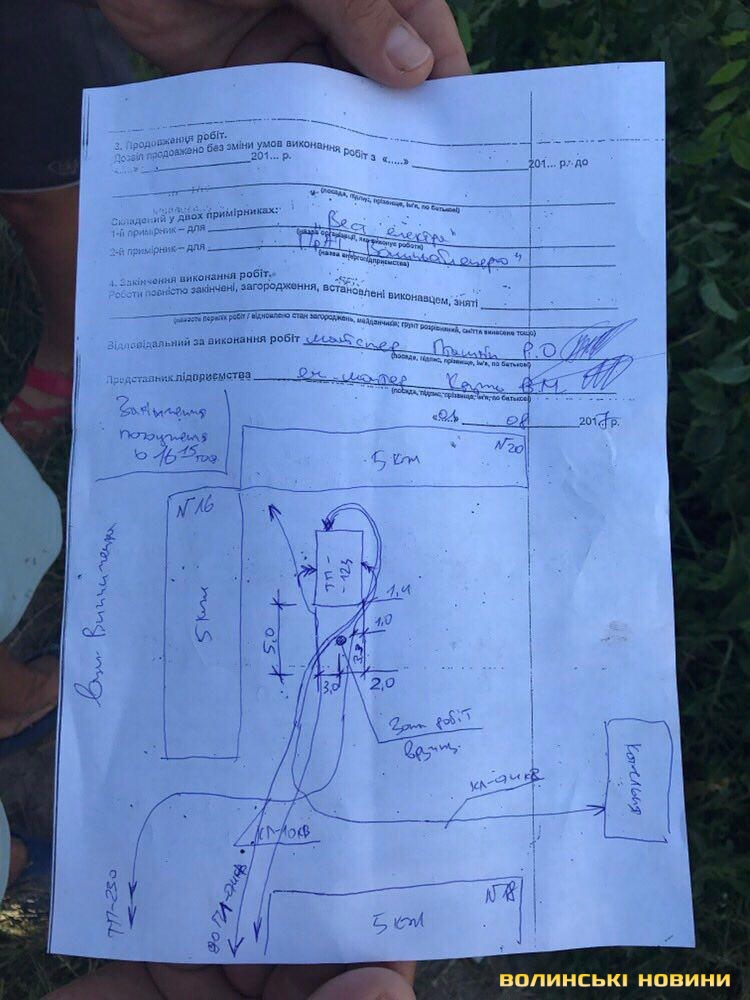 3. Продовження робіт.
Дозвіл продовжено без зміни умов виконання робіт з «.....» 201... р. до
«.....» 201... р.
(посада, підпис, прізвище, ім'я, по батькові)
Складений у двох примірниках:
1-й примірник – для "Вест електро"
(назва організації, яка виконує роботи)
2-й примірник – для ПрАТ "Волиньобленерго"
(назва енергопідприємства)
4. Закінчення виконання робіт.
Роботи повністю закінчені, загородження, встановлені виконавцем, зняті
(навести перелік робіт / відновлено стан загороджень, майданчиків; ґрунт розрівняний, сміття винесене тощо)
Відповідальний за виконання робіт майстер Р.О.
(посада, підпис, прізвище, ім'я, по батькові)
Представник підприємства В.М.
(посада, підпис, прізвище, ім'я, по батькові)
«01» 08 2017 р.
о 16 15 год
5 кт
N20
N16
5 кт
ТП-
-123
вул Винниченка
5,0
1,4
1,0
3,3
3,0
2,0
Зона робіт
вручну
КЛ-04 кВ
Котельня
КЛ-10 кВ
ТП-230
N18
5 кт
ВОЛИНСЬКІ НОВИНИ